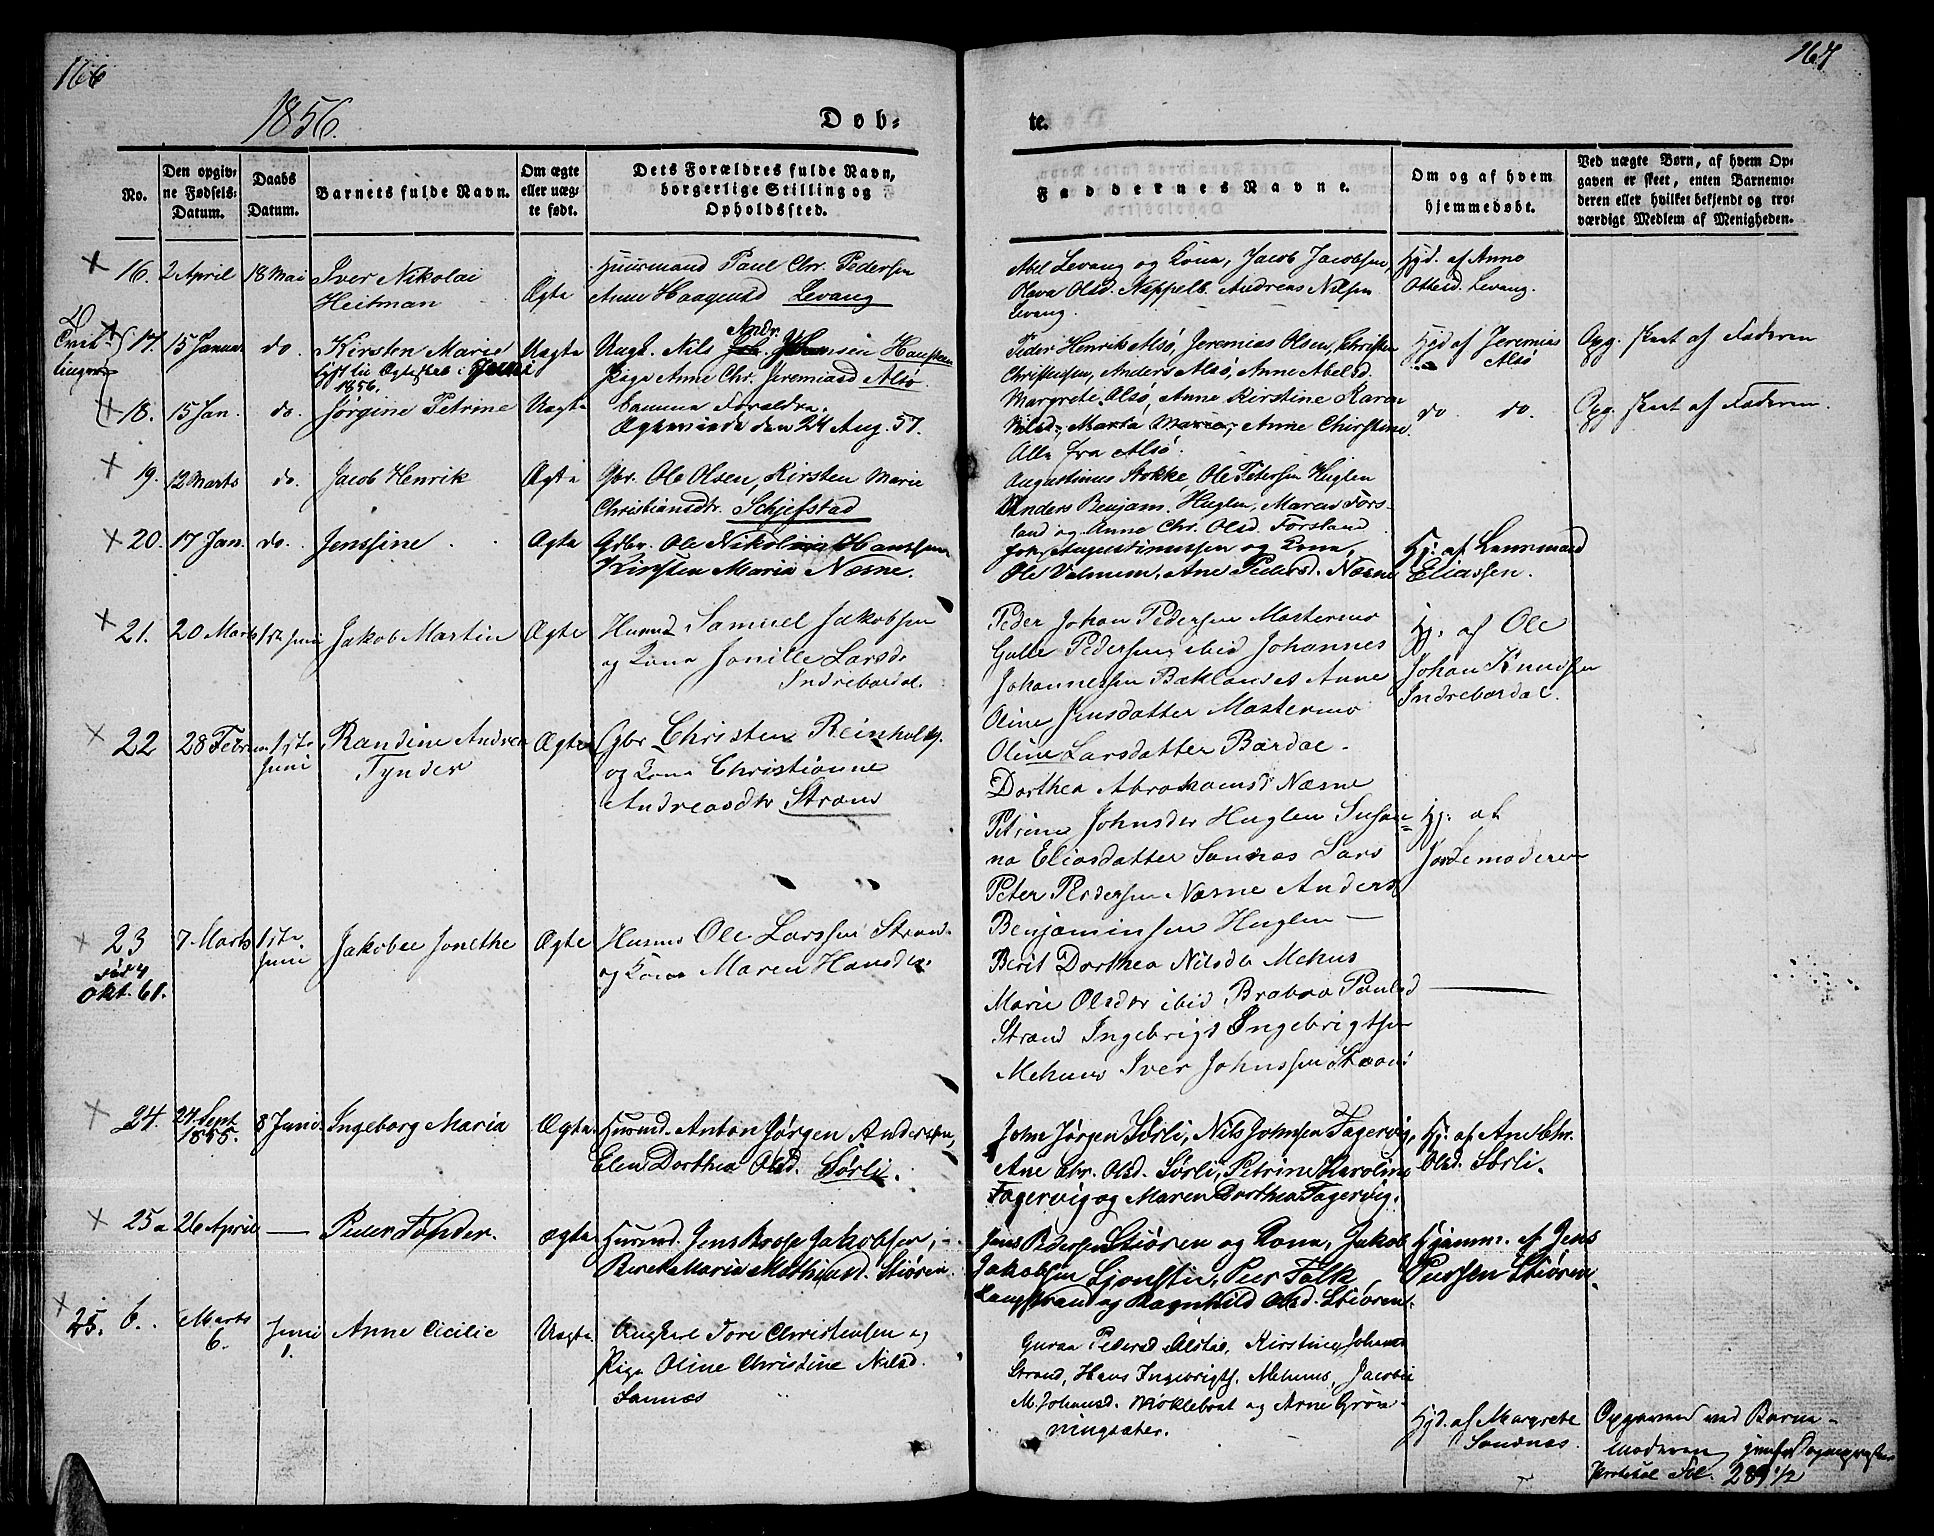 166
167
1856.
Døb-
te.
No.
Den opgiv-
ne Fødsels-
Datum.
Daabs
Datum.
Barnets fulde Navn.
Om ægte
eller uæg-
te født.
Dets Forældres fulde Navn,
borgerlige Stilling og
Opholdssted.
Faddernes Navne.
Om og af hvem
hjemmedøbt.
Ved uægte Børn, af hvem Op-
gaven er skeet, enten Barnemo-
deren eller hvilket bekjendt og tro-
værdigt Medlem af Menigheden.
16. 2 April 18 Mai Iver Nikolai
Heitman
Ægte
Huusmand Paul Chr. Pedersen
Anne Haagensd Levang
Abel Levang og Kona, Jacob Jacobsen,
Olava Olsd. Neppelb. Andreas Nilsen
Levang.
Hjd. af Anne
Ottesd. Levang.
17. 15 Januar do. Kirsten Marie
1856.
Uægte
Ungk. Nils Andr. Johansen
Pige Anne Chr. Jeremiasd Alsø.
Peder Henrik Alsø, Jeremias Olsen, Christen
Christensen, Anders Alsø, Anne Abelsd.
Hjd af Jeremias
Alsø
Opg. skeet af Faderen
18. 15 Jan. do. Jørgine Petrine Uægte
Samme Forældre.
Ægteviede den 24 Aug. 57.
Margrete Alsø, Anne Kirstine Karen
Nilsd., Marta Maria, Anne Christine.
Alle fra Alsø.
do. do.
Opg. skeet af Faderen.
19. 12 Marts do. Jacob Henrik Ægte
Gbr. Ole Olsen, Kirsten Marie
Christiansdr. Schjefstad
Augustinus Stokke, Ole Petersen Huglen
Anders Benjam. Huglen, Maren Fors-
land og Anne Chr. Olsd. Forsland
20. 17 Jan. do. Jenssine Ægte
Gdbr. Ole Nikolai Hanssen
Kirsten Maria Næsne.
Johs Augustinussen og Kona,
Ole Valmem, Ane Pedersd. Næsne
Hj. af Lensmand
Eliassen.
21. 20 Marts 1ste Juni Jakob Martin Ægte
Husmd Samuel Jakobsen
og Kona Jonille Larsdr
Indrebardal.
Peder Johan Pedersen Mastermo
Pedersen ibid Johannes
Johannessen Baklandet Anne
Oline Jensdatter Mastermo
Oline Larsdatter Bardal-
Hj. af Ole
Johan Knudsen
Indrebardal.
22 28 Februar 1ste
Juni
Randine Andrea
Tynder
Ægte
Gbr Christen Reinholts.
og Kona Christianne
Andreasdtr Strand
Dorthea Abrahamsd Næsne
Petrine Johnsdtr Huglen Susan-
na Eliasdatter Sannæs Lars
Peter Pedersen Næsne Anders
Benjaminsen Huglen
Hj. af
Jordemoderen
23 7 Marts 1ste
Juni
Jakobee Jonethe Ægte
død 4
Okt. 61.
Husmd Ole Larssen Strand
og Kona Maren Hansdtr.
Berit Dorthea Nilsdr Mehus
Marie Olsdtr ibid Brabra Paulsd
Strand Ingebrigt Ingebrigtsen
Mehuus Iver Johnssen Strand
24. 24 Sept
1855.
8 Juni Ingeborg Maria Ægte.
Husmd. Anton Jørgen Anderssen,
Elen Dorthea Olsd. Sørli.
John Jørgen Sørli, Nils Johnsen Fagervig,
Ane Chr. Olsd. Sørli, Petrine Karoline
Fagervig og Maren Dorthea Fagervig.
Hj. af Ane Chr.
Olsd. Sørli.
25 a 26 April — Peder Tønder. Ægte
Husmd. Jens Boose Jakobsen,
Beret Maria Mathiasd. Stiøren.
Jens Pedersen Stiøren og Kona, Jakob
Jakobsen Ljonstie, Peer Falk
Langstrand og Ragnhild Olsd. Stiøren.
Hjemme. af Jens
Peersen Stiøren.
25. b. Marts
6.
Juni
1.
Anne Cicilie Uægte
Ungkarl Tore Christensen og
Pige Oline Christine Nilsd.
Sannæs
Guraa Pedersd Alstad, Kirstine Johansd
Strand, Hans Ingebrigts. Mehuus, Jacobie
M. Johansd. Mokleboet og Arne Grøn-
ningsæter.
Hjd. af Margrete
Sandnæs.
Opgaven ved Barne-
moderen
Protokol Fol. 289 1/2